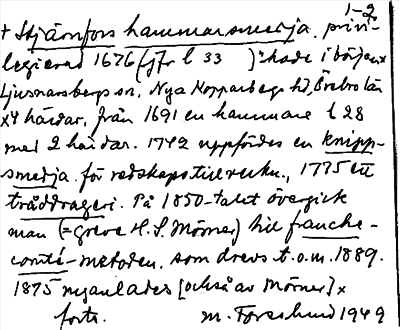 1-2
+ Stjärnfors hammarsmedja. privi-
legierad 1676 (jfr l 33 ) "hade i början x
Ljusnarsbergs sn, Nya Kopparbergs hd, Örebro län
x4 härdar, från 1691 en hammare l 28
med 2 härdar. 1742 uppfördes en knipp-
smedja för redskapstillverkn., 1775 ett
tråddrageri. På 1850-talet övergick
man (= greve H. S. Mörner) till franche-
comté-metoden, som drevs t.o.m. 1889.
1875 nyanlades [också av Mörner] x
forts. M. Forslund 1949